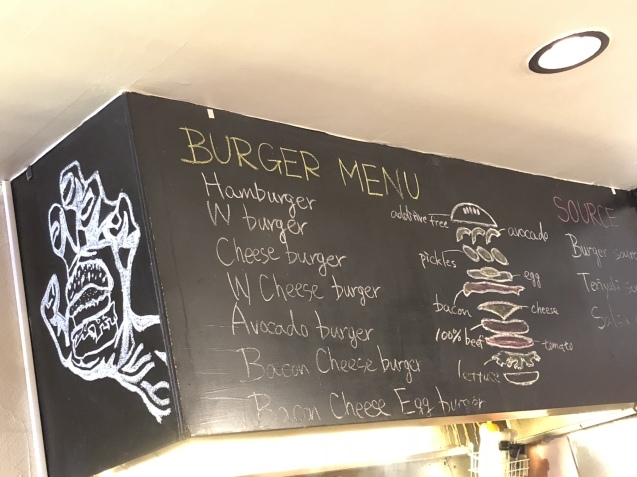 BURGER MENU
Hamburger
W burger
Cheese burger
W Cheese burger
Avocado burger
Bacon Cheese burger
Bacon Cheese Egg burger
additive free
avocado
pickles
egg
bacon
cheese
100% beef
tomato
lettuce
SOURCE
Burger